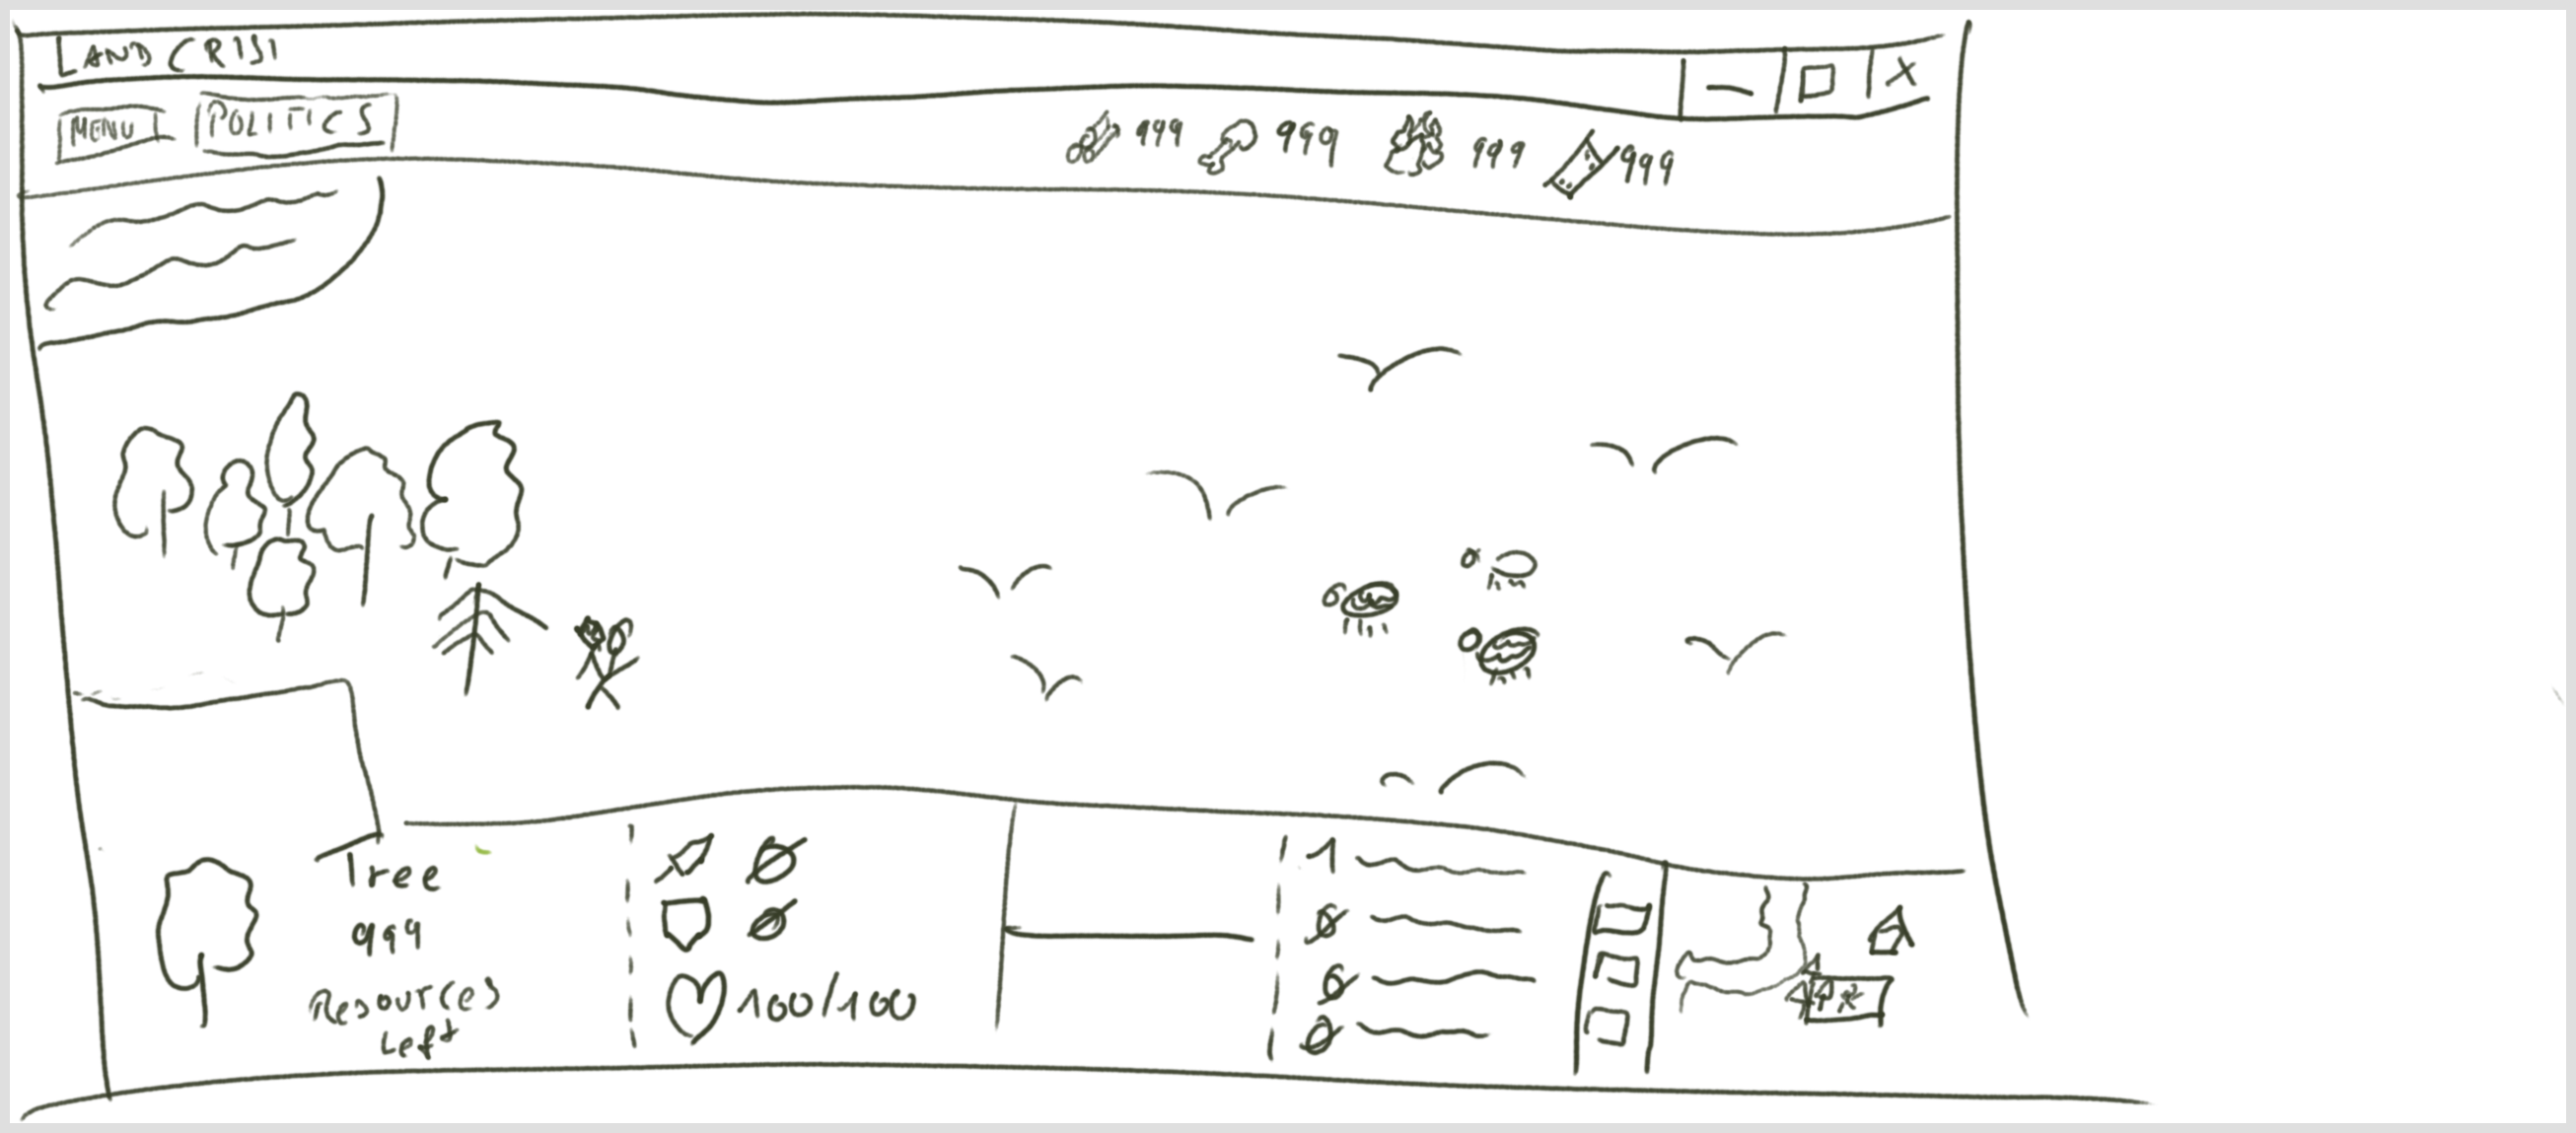 LAND CRISI
MENU POLITICS 999 999 999 999
Tree
999
Resources
Left
100/100
1
0
0
0